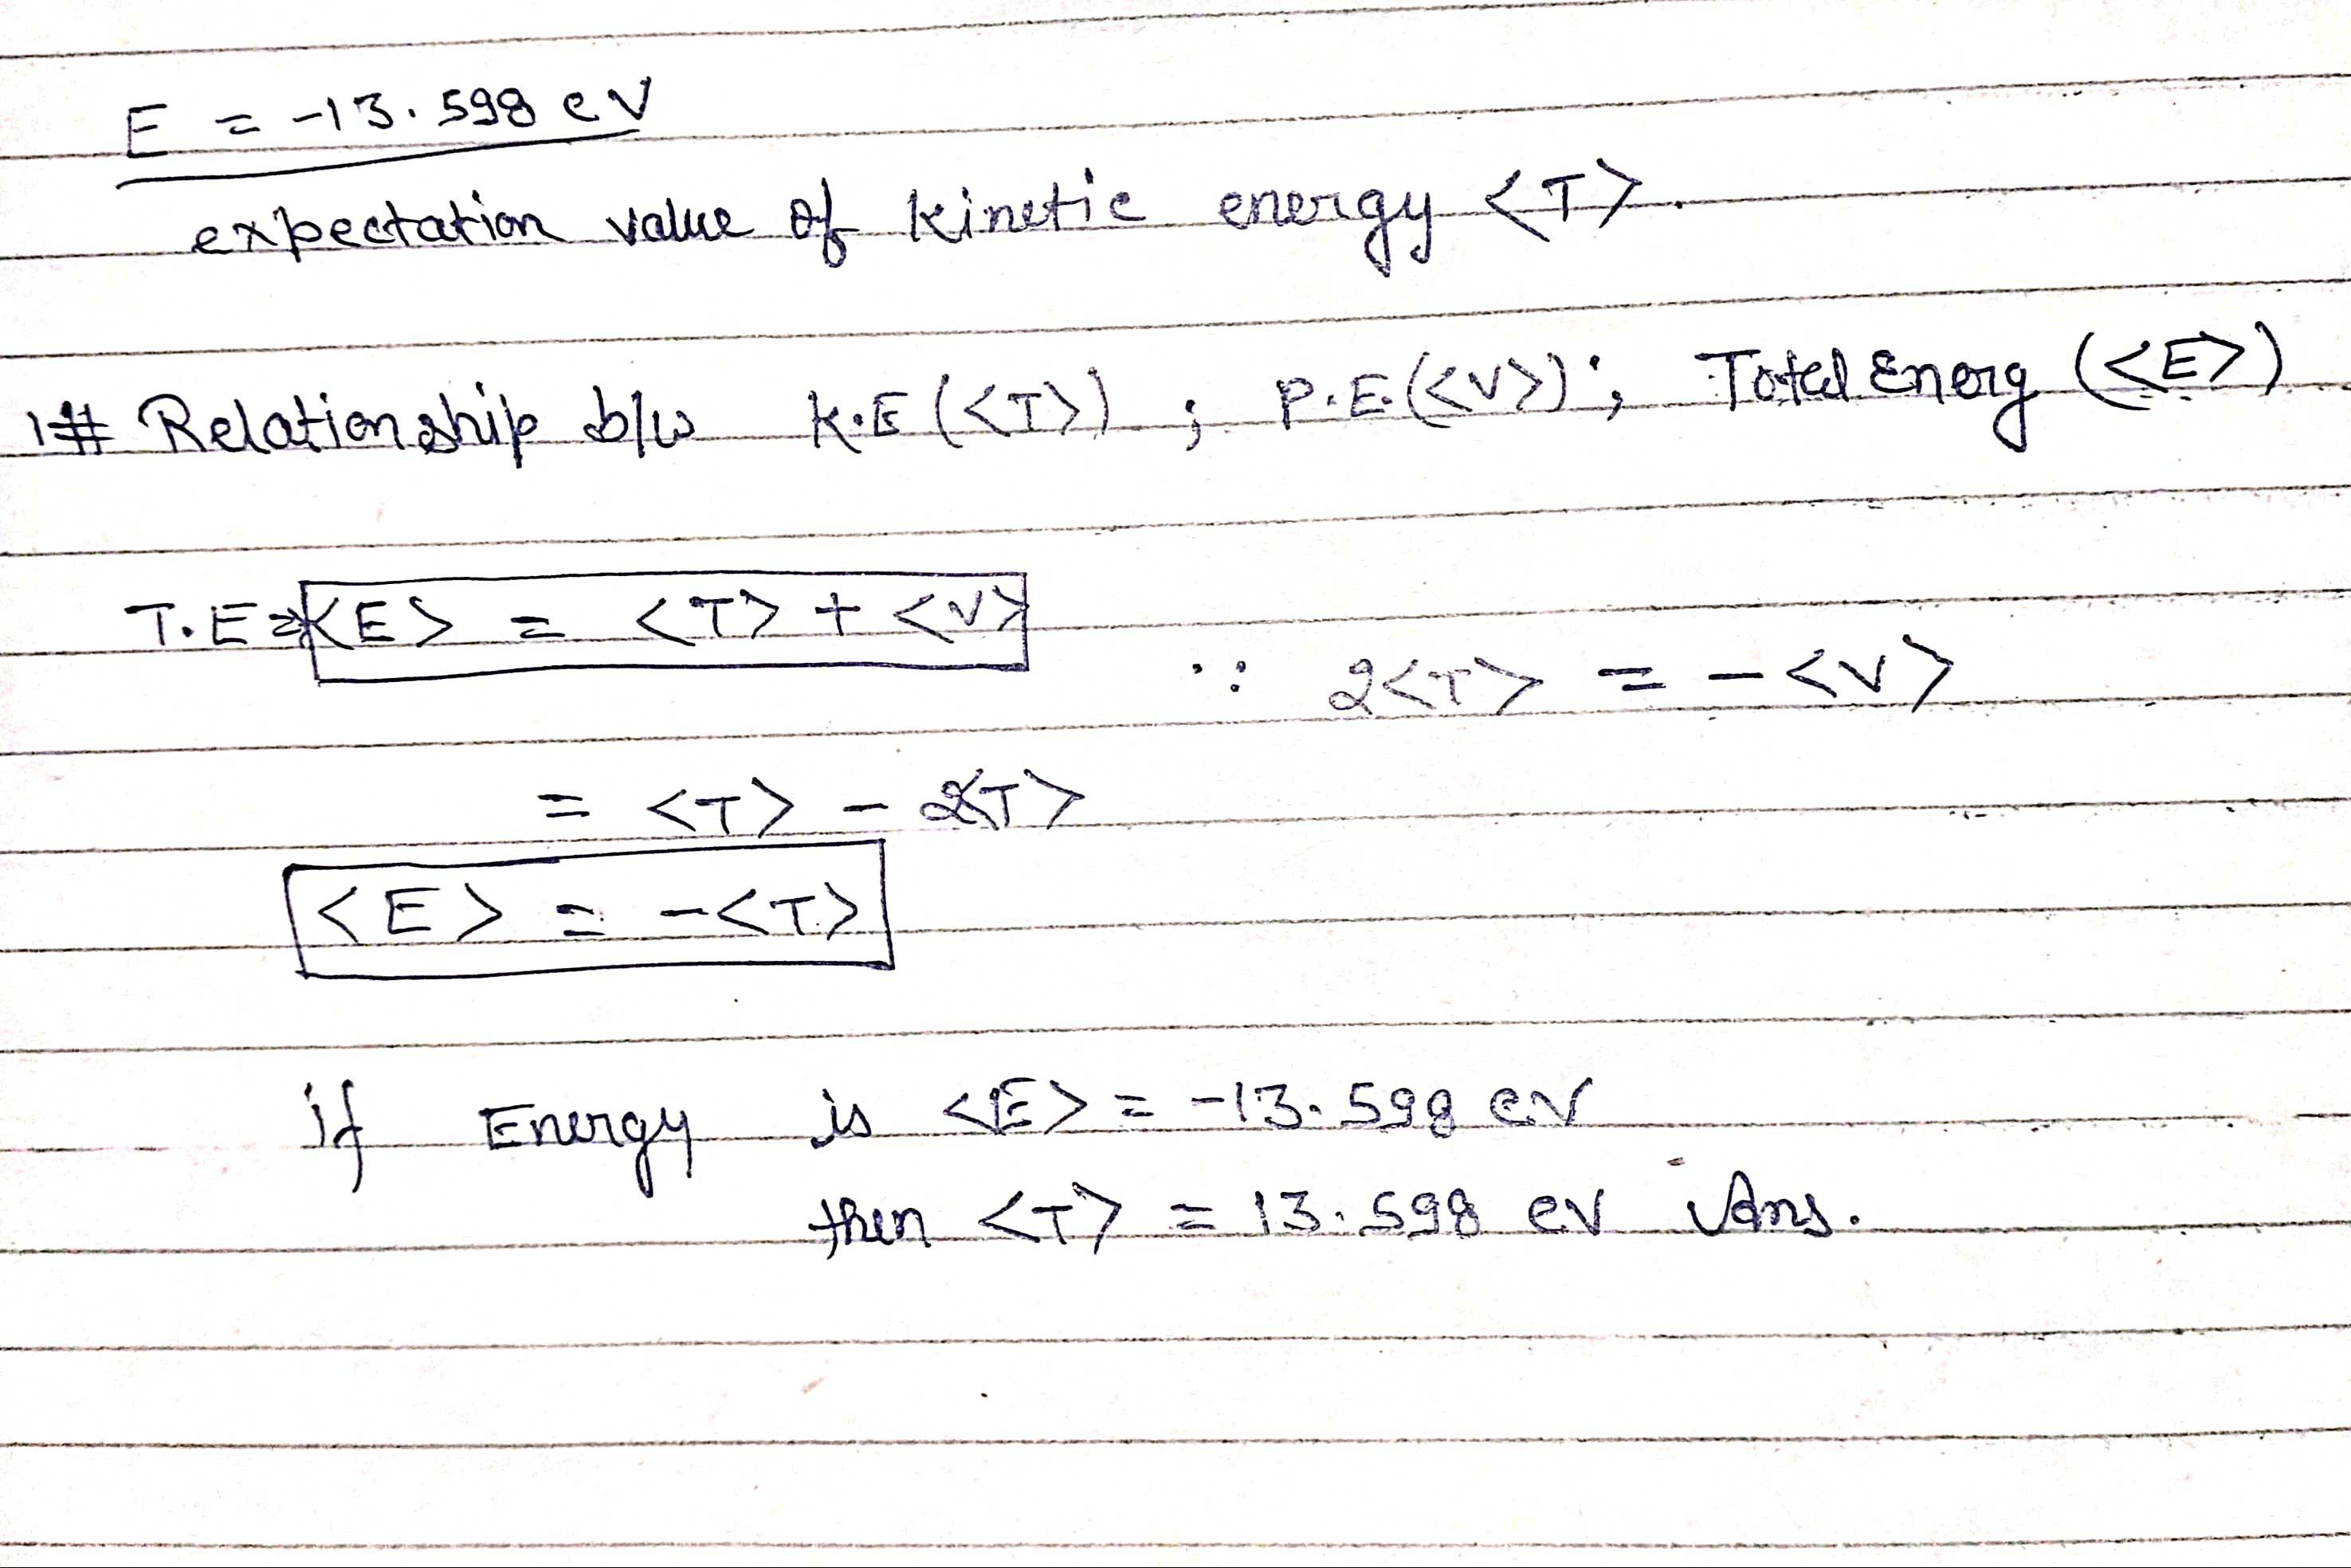 E = -13.598 eV
expectation value of kinetic energy <T>.
1# Relationship b/w K.E (<T>) ; P.E.(<V>); Total Energ (<E>)
T.E ⇒ <E> = <T> + <V>
∵ 2<T> = -<V>
= <T> - 2<T>
<E> = -<T>
if Energy is <E> = -13.598 eV
then <T> = 13.598 eV Ans.